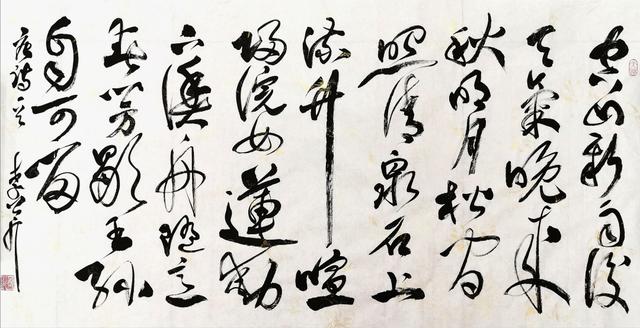 空山新雨後
天氣晚來
秋明月松間
照清泉石上
流竹喧
歸浣女蓮動
下漁舟隨意
春芳歇王孫
自可留
唐詩